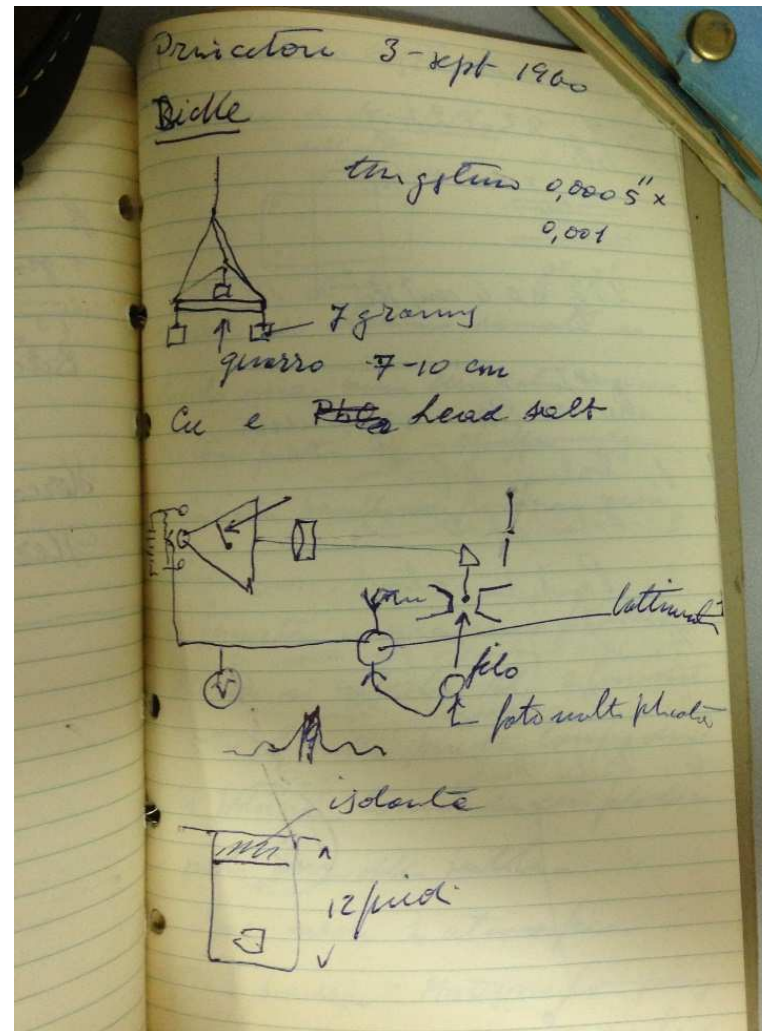 Princeton 3-sept 1960
Dicke
tungsteno 0,0005" x
0,001
7 grams
quarzo 7-10 cm
Cu e PbCl2 Lead salt
V
battimenti
filo
fotomoltiplicatore
isolante
12 piedi